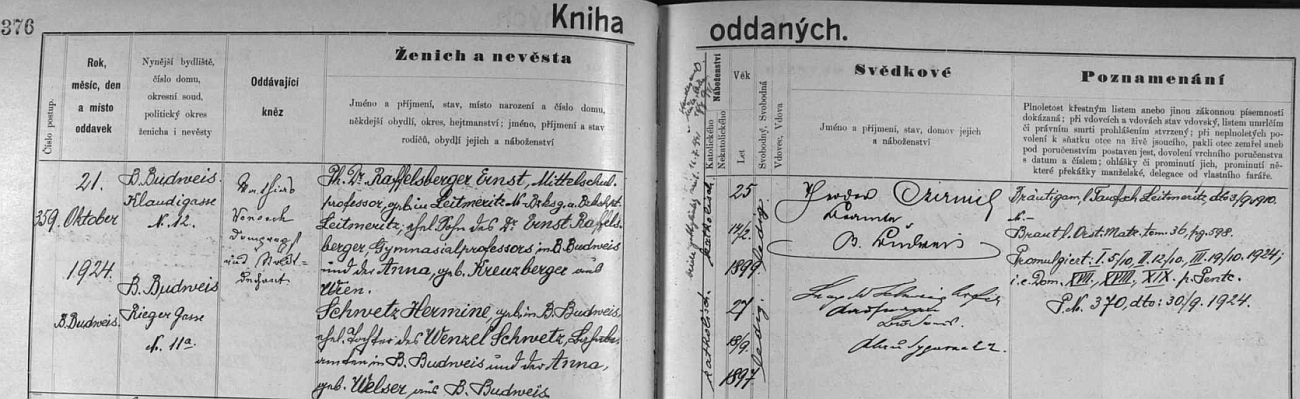 376
Kniha
oddaných.
Číslo postup.
Rok,
měsíc, den
a místo
oddavek
Nynější bydliště,
číslo domu,
okresní soud,
politický okres
ženicha i nevěsty
Oddávající
kněz
Ženich a nevěsta
Jméno a příjmení, stav, místo narození a číslo domu,
někdejší obydlí, okres, hejtmanství; jméno, příjmení a stav
rodičů, obydlí jejich a náboženství
Katolického
Nekatolického
Náboženství
Věk
Let
Svobodný, Svobodná
Vdovec, Vdova
Svědkové
Jméno a příjmení, stav, domov jejich
a náboženství
Poznamenání
Plnoletost křestným listem anebo jinou zákonnou písemností
dokázaná; při vdovcích a vdovách stav vdovský, listem umrlčím
či právním smrti prohlášením stvrzený; při nepholetých po-
volení k sňatku otec na živě jsoucího, pakli otec zemřel aneb
pod poručenstvím postaven jest, dovolení vrchního poručenstva
s datum a číslem; ohlášky či prominutí jich, prominutí ně-
které překážky manželské, delegace od vlastního faráře.
359.
21.
Oktober
1924.
B. Budweis.
B. Budweis.
Klaudigasse
N. 12.
B. Budweis
Rieger Gasse
N. 11a.
Ph. Dr. Raffelsberger Ernst, Mittelschul-
professor, geb. in Leitmeritz
Leitmeritz, ehel. Sohn des Dr. Ernst Raffels-
berger, Gymnasialprofessors, in B. Budweis
und der Anna, geb. Kreuzberger aus
Wien.
Schwetz Hermine, geb. in B. Budweis,
ehel. Tochter des Wenzel Schwetz,
in B. Budweis und der Anna,
geb. Welser aus B. Budweis
katholisch.
25
14/2.
1899
ledig.
katholisch.
27
18/9.
1897
ledig.
B. Budweis
Bräutigam l. Taufsch. Leitmeritz dto 3/9 1910.
Braut l. Oest. Matr. tom. 36, pg. 598.
Promulgiert: I. 5/10, II. 12/10, III. 19/10. 1924;
i. e. Dom. XVII, XVIII, XIX. p. Pente.
P. N. 370, dto: 30/9. 1924.